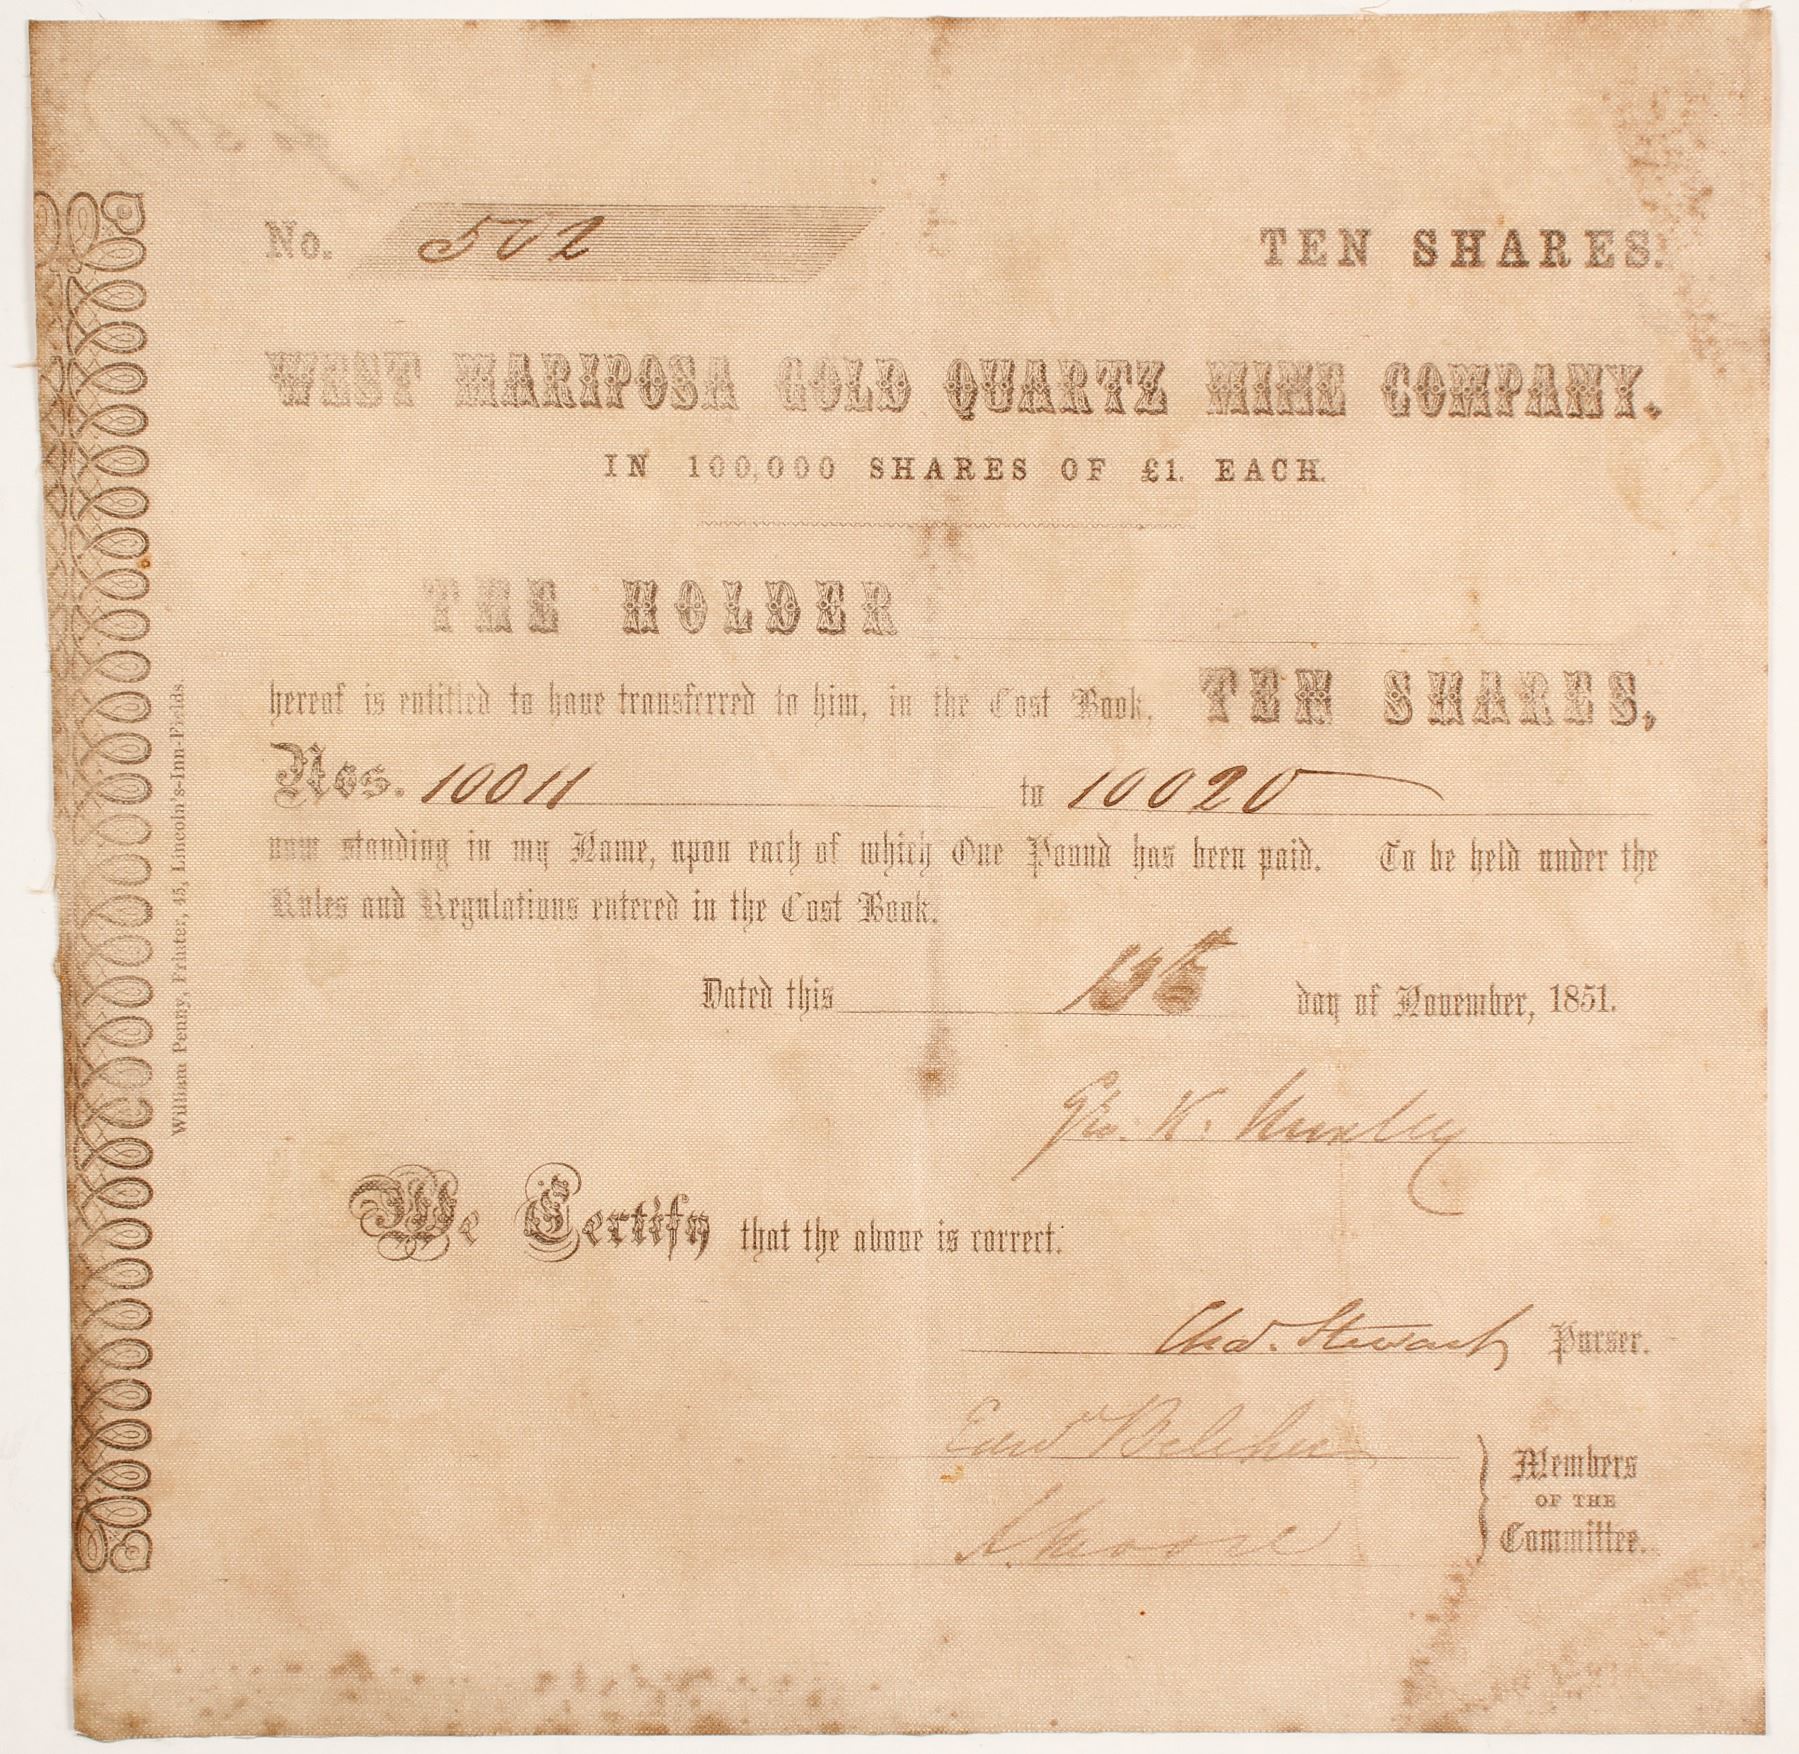 No. 502
TEN SHARES.
WEST MARIPOSA GOLD QUARTZ MINE COMPANY.
IN 100,000 SHARES OF £1. EACH.
THE HOLDER
hereof is entitled to have transferred to him, in the Cost Book, TEN SHARES,
Nos. 10011 to 10020
now standing in my Name, upon each of which One Pound has been paid. To be held under the
Rules and Regulations entered in the Cost Book.
Dated this day of November, 1851.
Geo. K.
We Certify that the above is correct.
Chas. Stewart Purser.
Edwd Belcher
Moore
Members
OF THE
Committee.
William Penny, Printer, 45, Lincoln's-Inn-Fields.